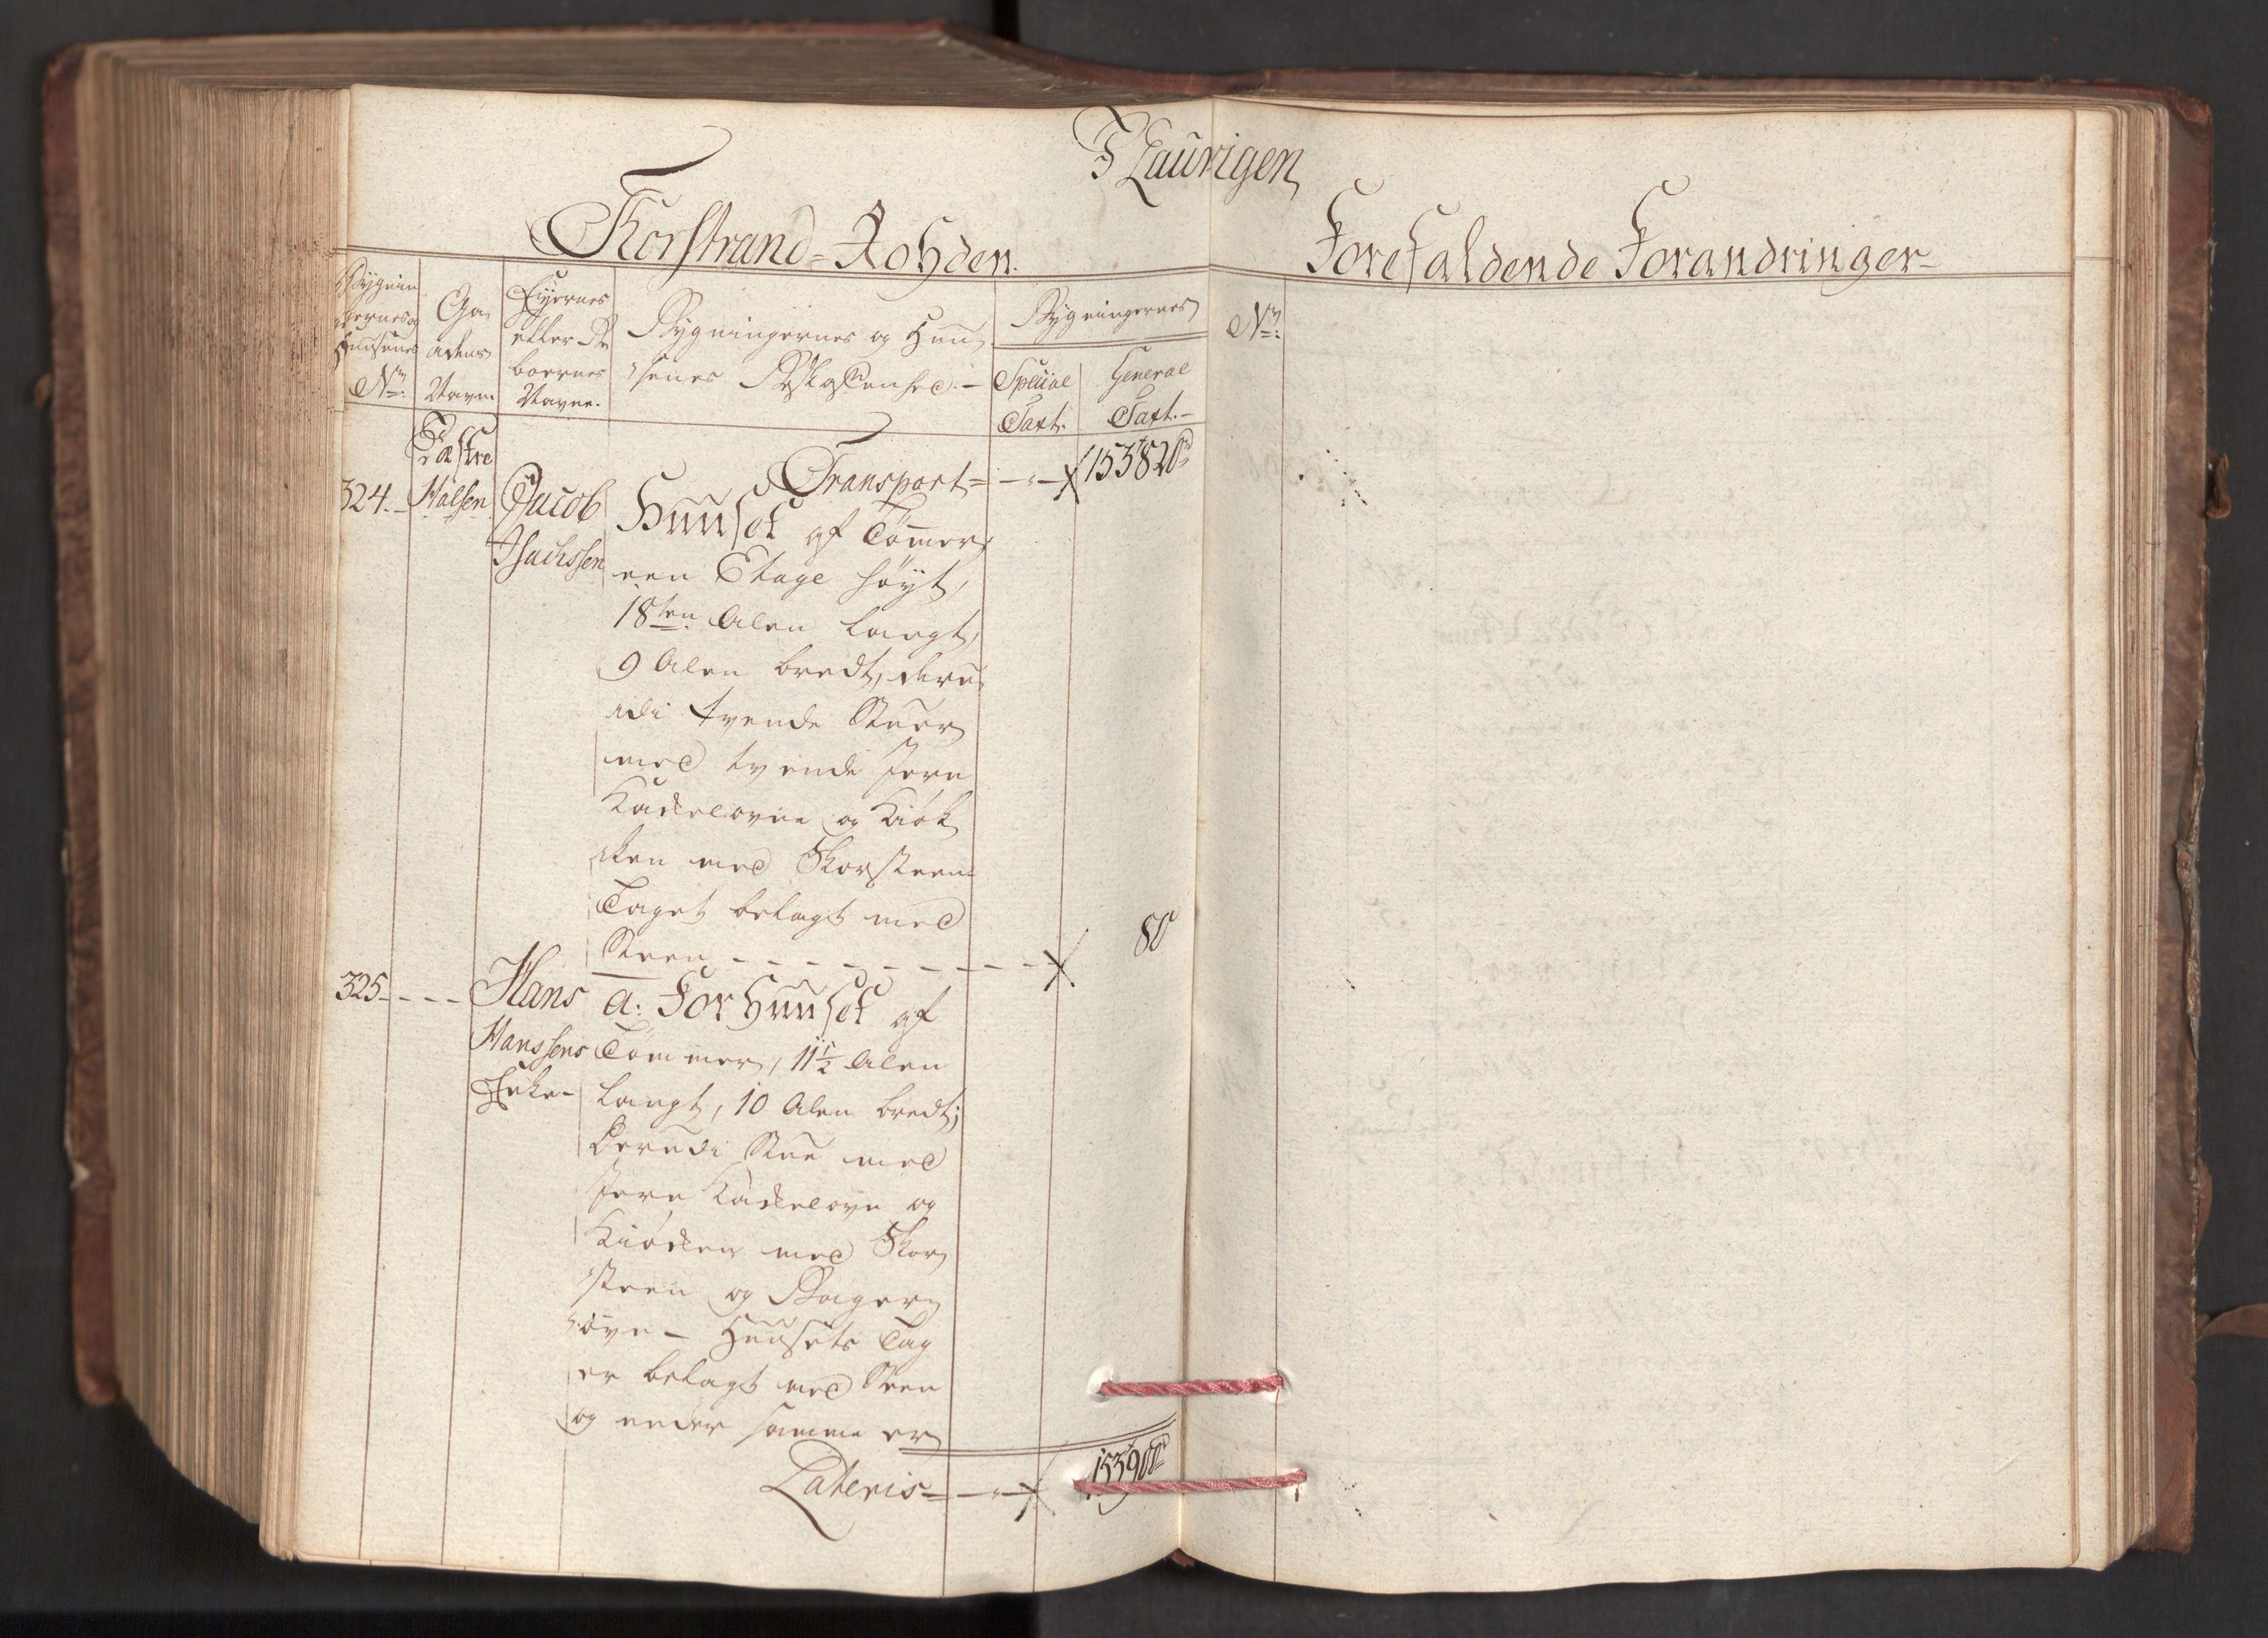 I Laurvigen
Torstrand-Rohden.
Forefaldende Forandringer
Bygnin
gernes og
Huusenes
No:
Ga
dens
Navn
Eyernes
eller Be
boernes
Navne.
Bygningernes og Huu
senes Beskaffenhed.
Bygningernes
Special
Taxt.
General
Taxt.
No:
Transport 153820
324. Halsen Jacob Huuset af Tømmer
Isachssen een Etage høyt,
18ten Alen langt,
9 Alen bredt, deru
udi tvende Stuer
med tvende Jern
Kackelovne og Kiøk
ken med Skorsteen
Taget belagt med
Steen 80
325 Hans a: Forhuuset af
Hanssens Tømmer, 11½ Alen
Enke langt, 10 Alen bredt;
Derudi Stue med
Jern Kackelovn og
Kiøcken med Skor
steen og Bager
ovn - Huusets Tag
er belagt med Steen
og under samme er
Lateris 153900